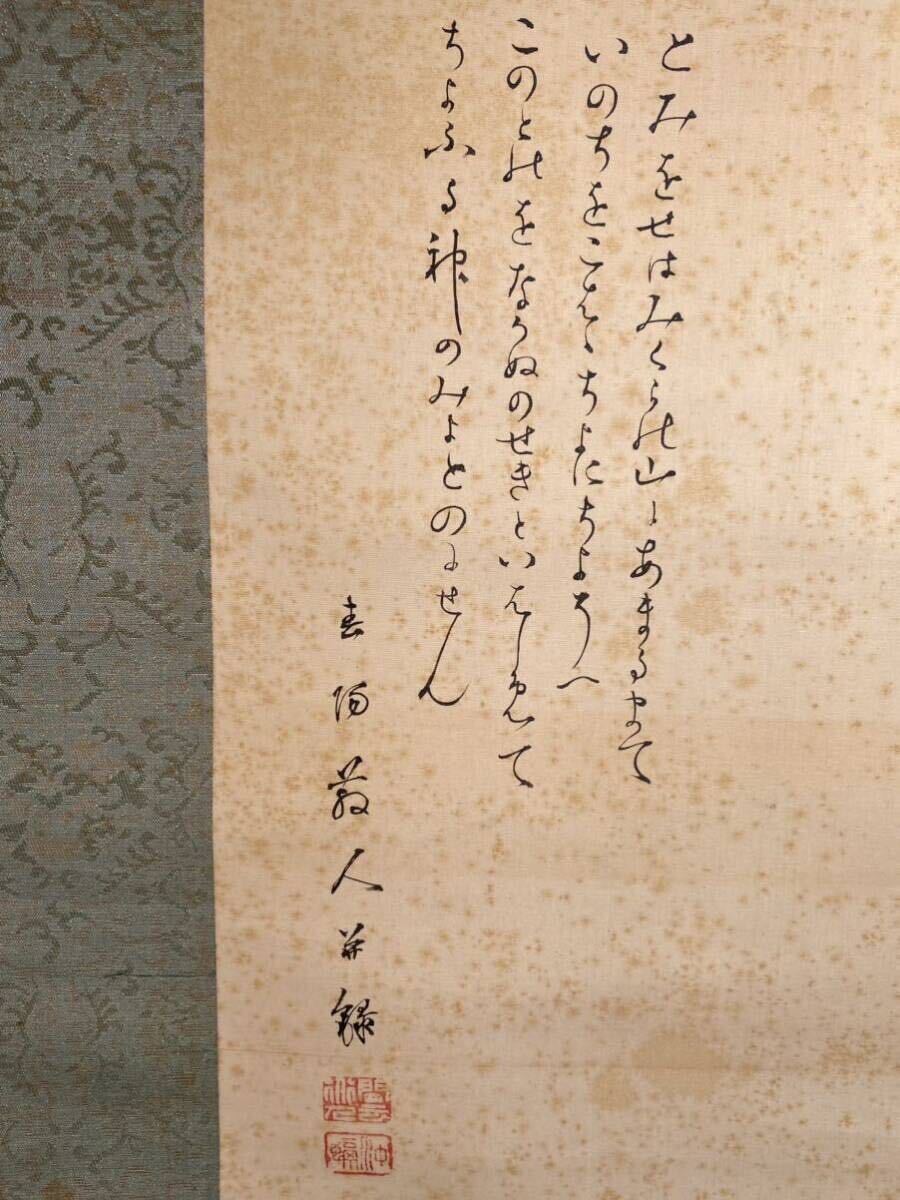 とみをせはみくらの山にあまるまて
いのちをこはゝちよにちよそへ
このとのをなかぬのせきといはしめて
ちよふる神のみよとのにせん
春陽散人并録